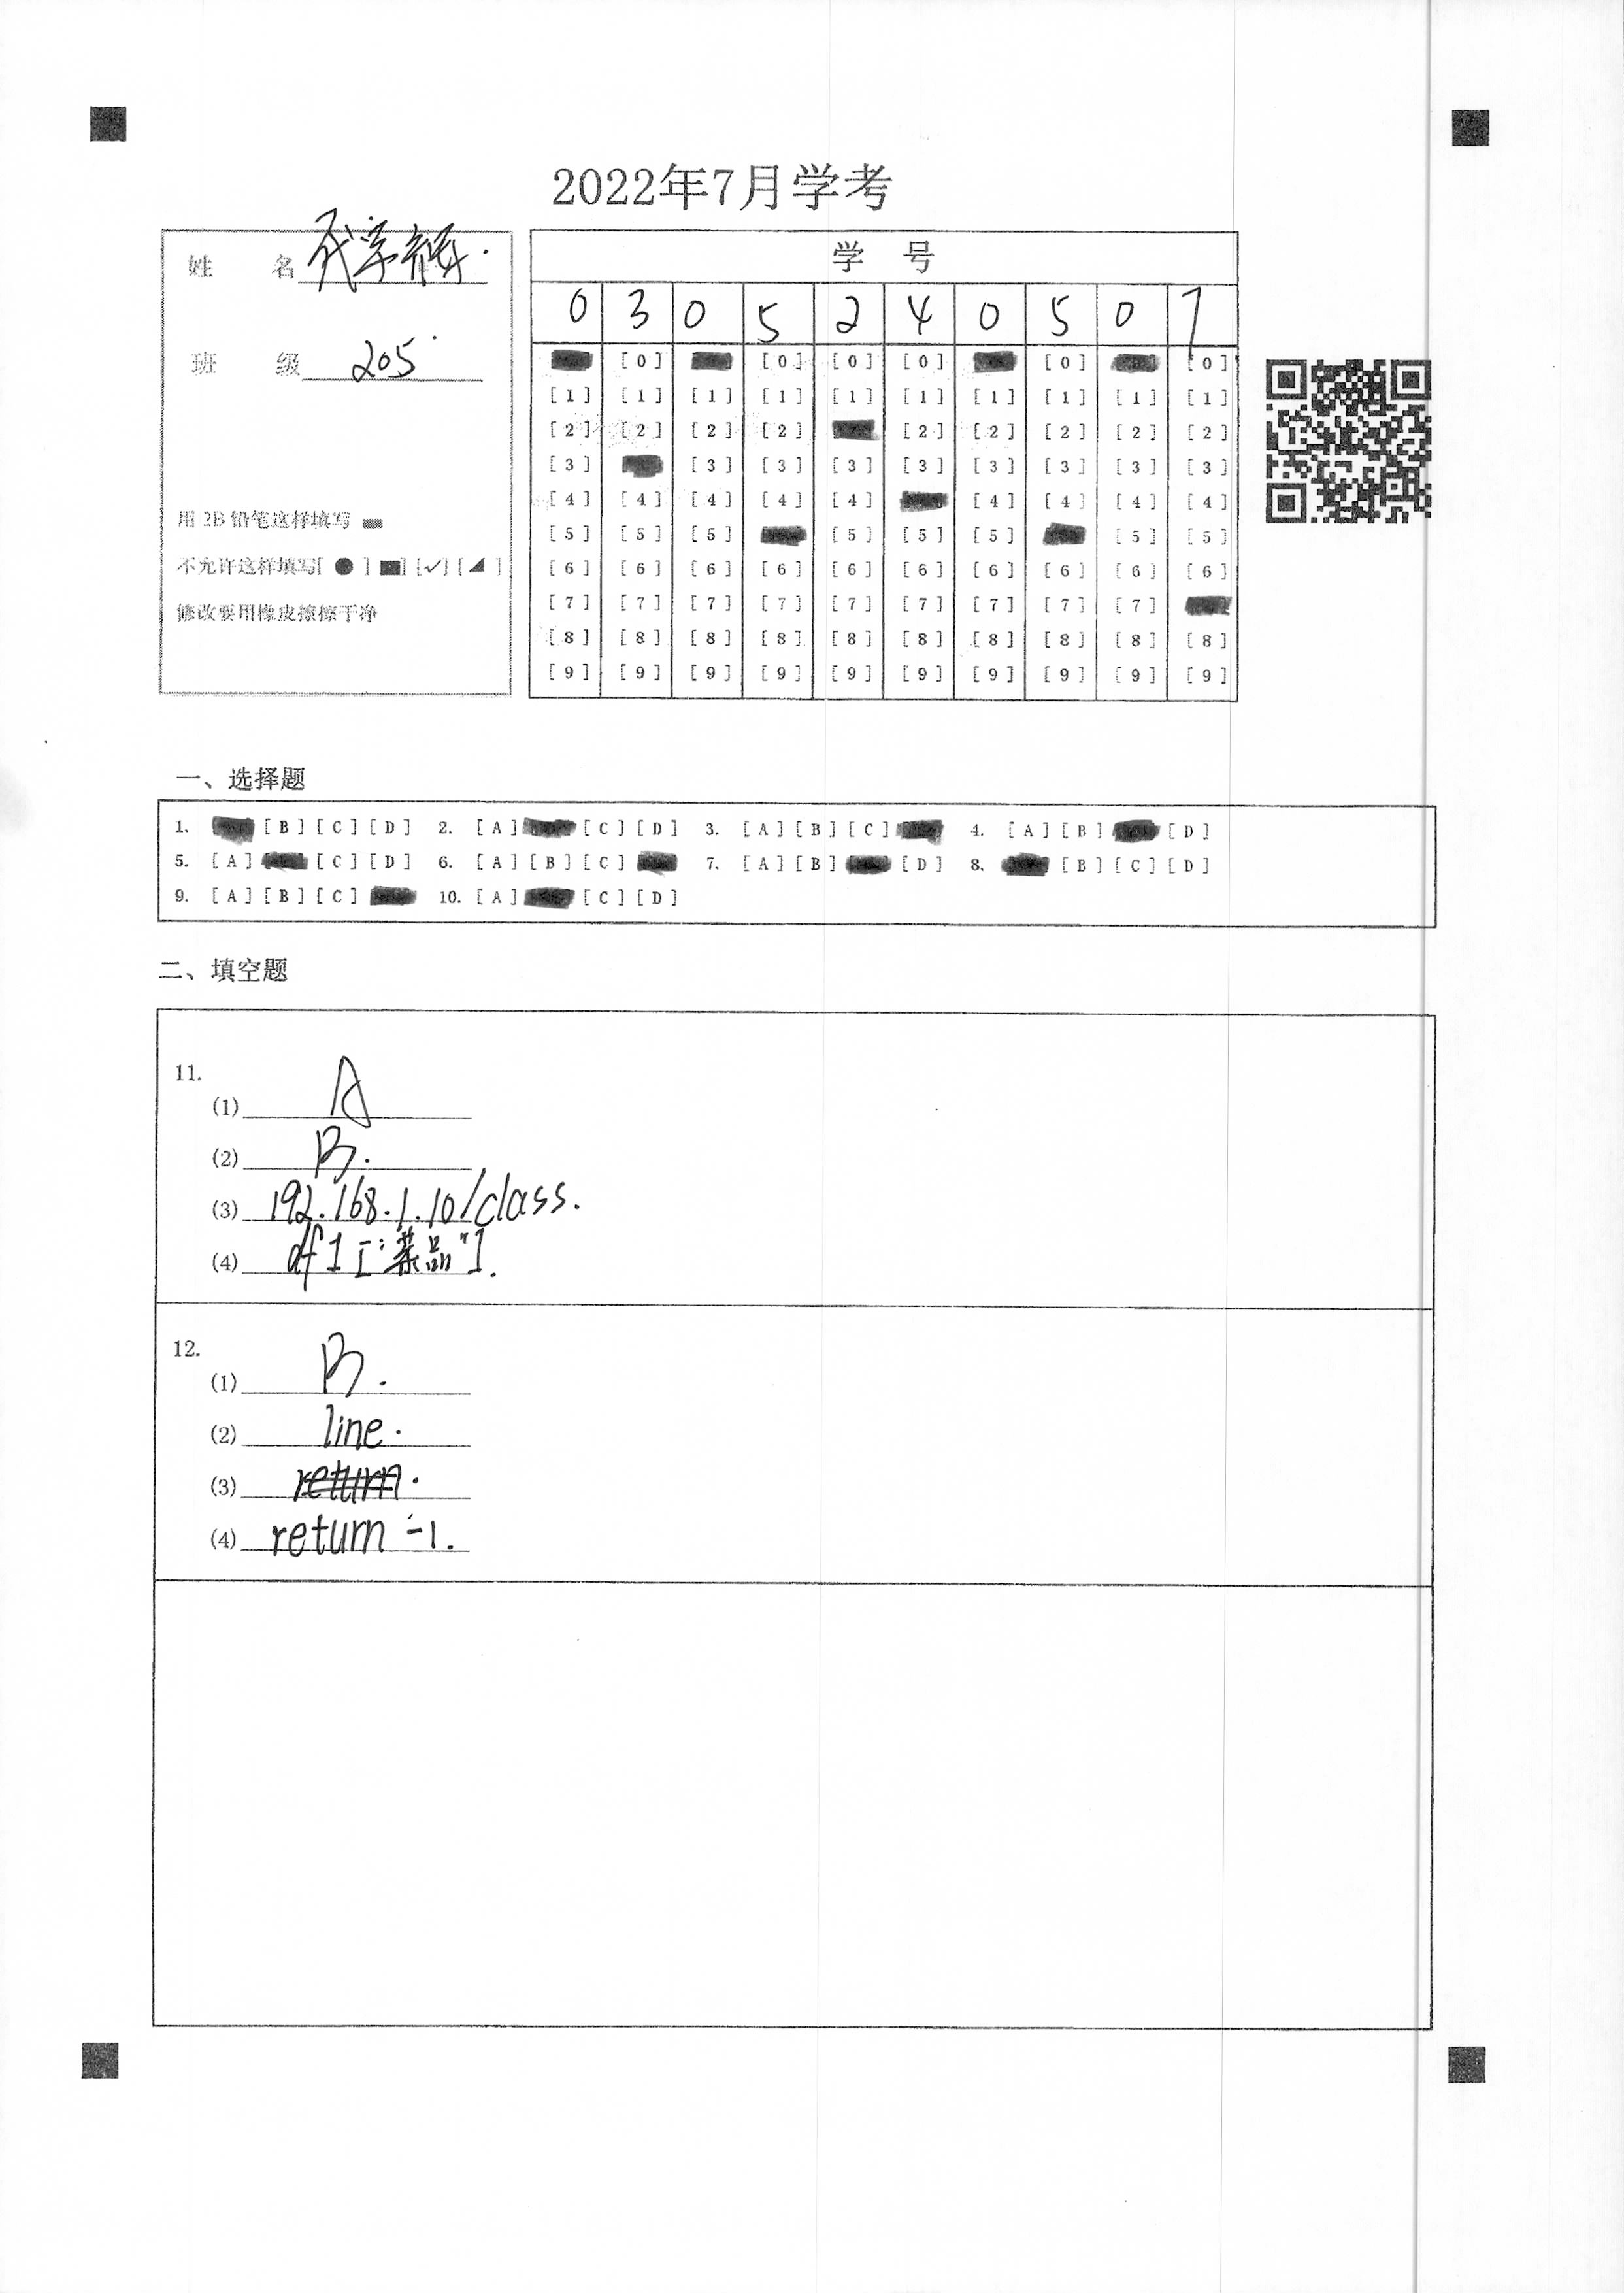 2022年7月学考
姓 名
班 级 205
用 2B 铅笔这样填写
不允许这样填写[ ● ] ■] [✓] [◢ ]
修改要用橡皮擦擦干净
学 号
0 3 0 5 2 4 0 5 0 7
[0] [0] [0] [0] [0] [0]
[1] [1] [1] [1] [1] [1] [1] [1] [1] [1]
[2] [2] [2] [2] [2] [2] [2] [2] [2]
[3] [3] [3] [3] [3] [3] [3] [3] [3]
[4] [4] [4] [4] [4] [4] [4] [4] [4]
[5] [5] [5] [5] [5] [5] [5] [5]
[6] [6] [6] [6] [6] [6] [6] [6] [6] [6]
[7] [7] [7] [7] [7] [7] [7] [7] [7]
[8] [8] [8] [8] [8] [8] [8] [8] [8] [8]
[9] [9] [9] [9] [9] [9] [9] [9] [9] [9]
一、选择题
1. [B] [C] [D] 2. [A] [C] [D] 3. [A] [B] [C] 4. [A] [B] [D]
5. [A] [C] [D] 6. [A] [B] [C] 7. [A] [B] [D] 8. [B] [C] [D]
9. [A] [B] [C] 10. [A] [C] [D]
二、填空题
11.
(1) A
(2) B.
(3) 192.168.1.10/class.
(4) df1["菜品"].
12.
(1) B.
(2) line.
(3) return.
(4) return -1.